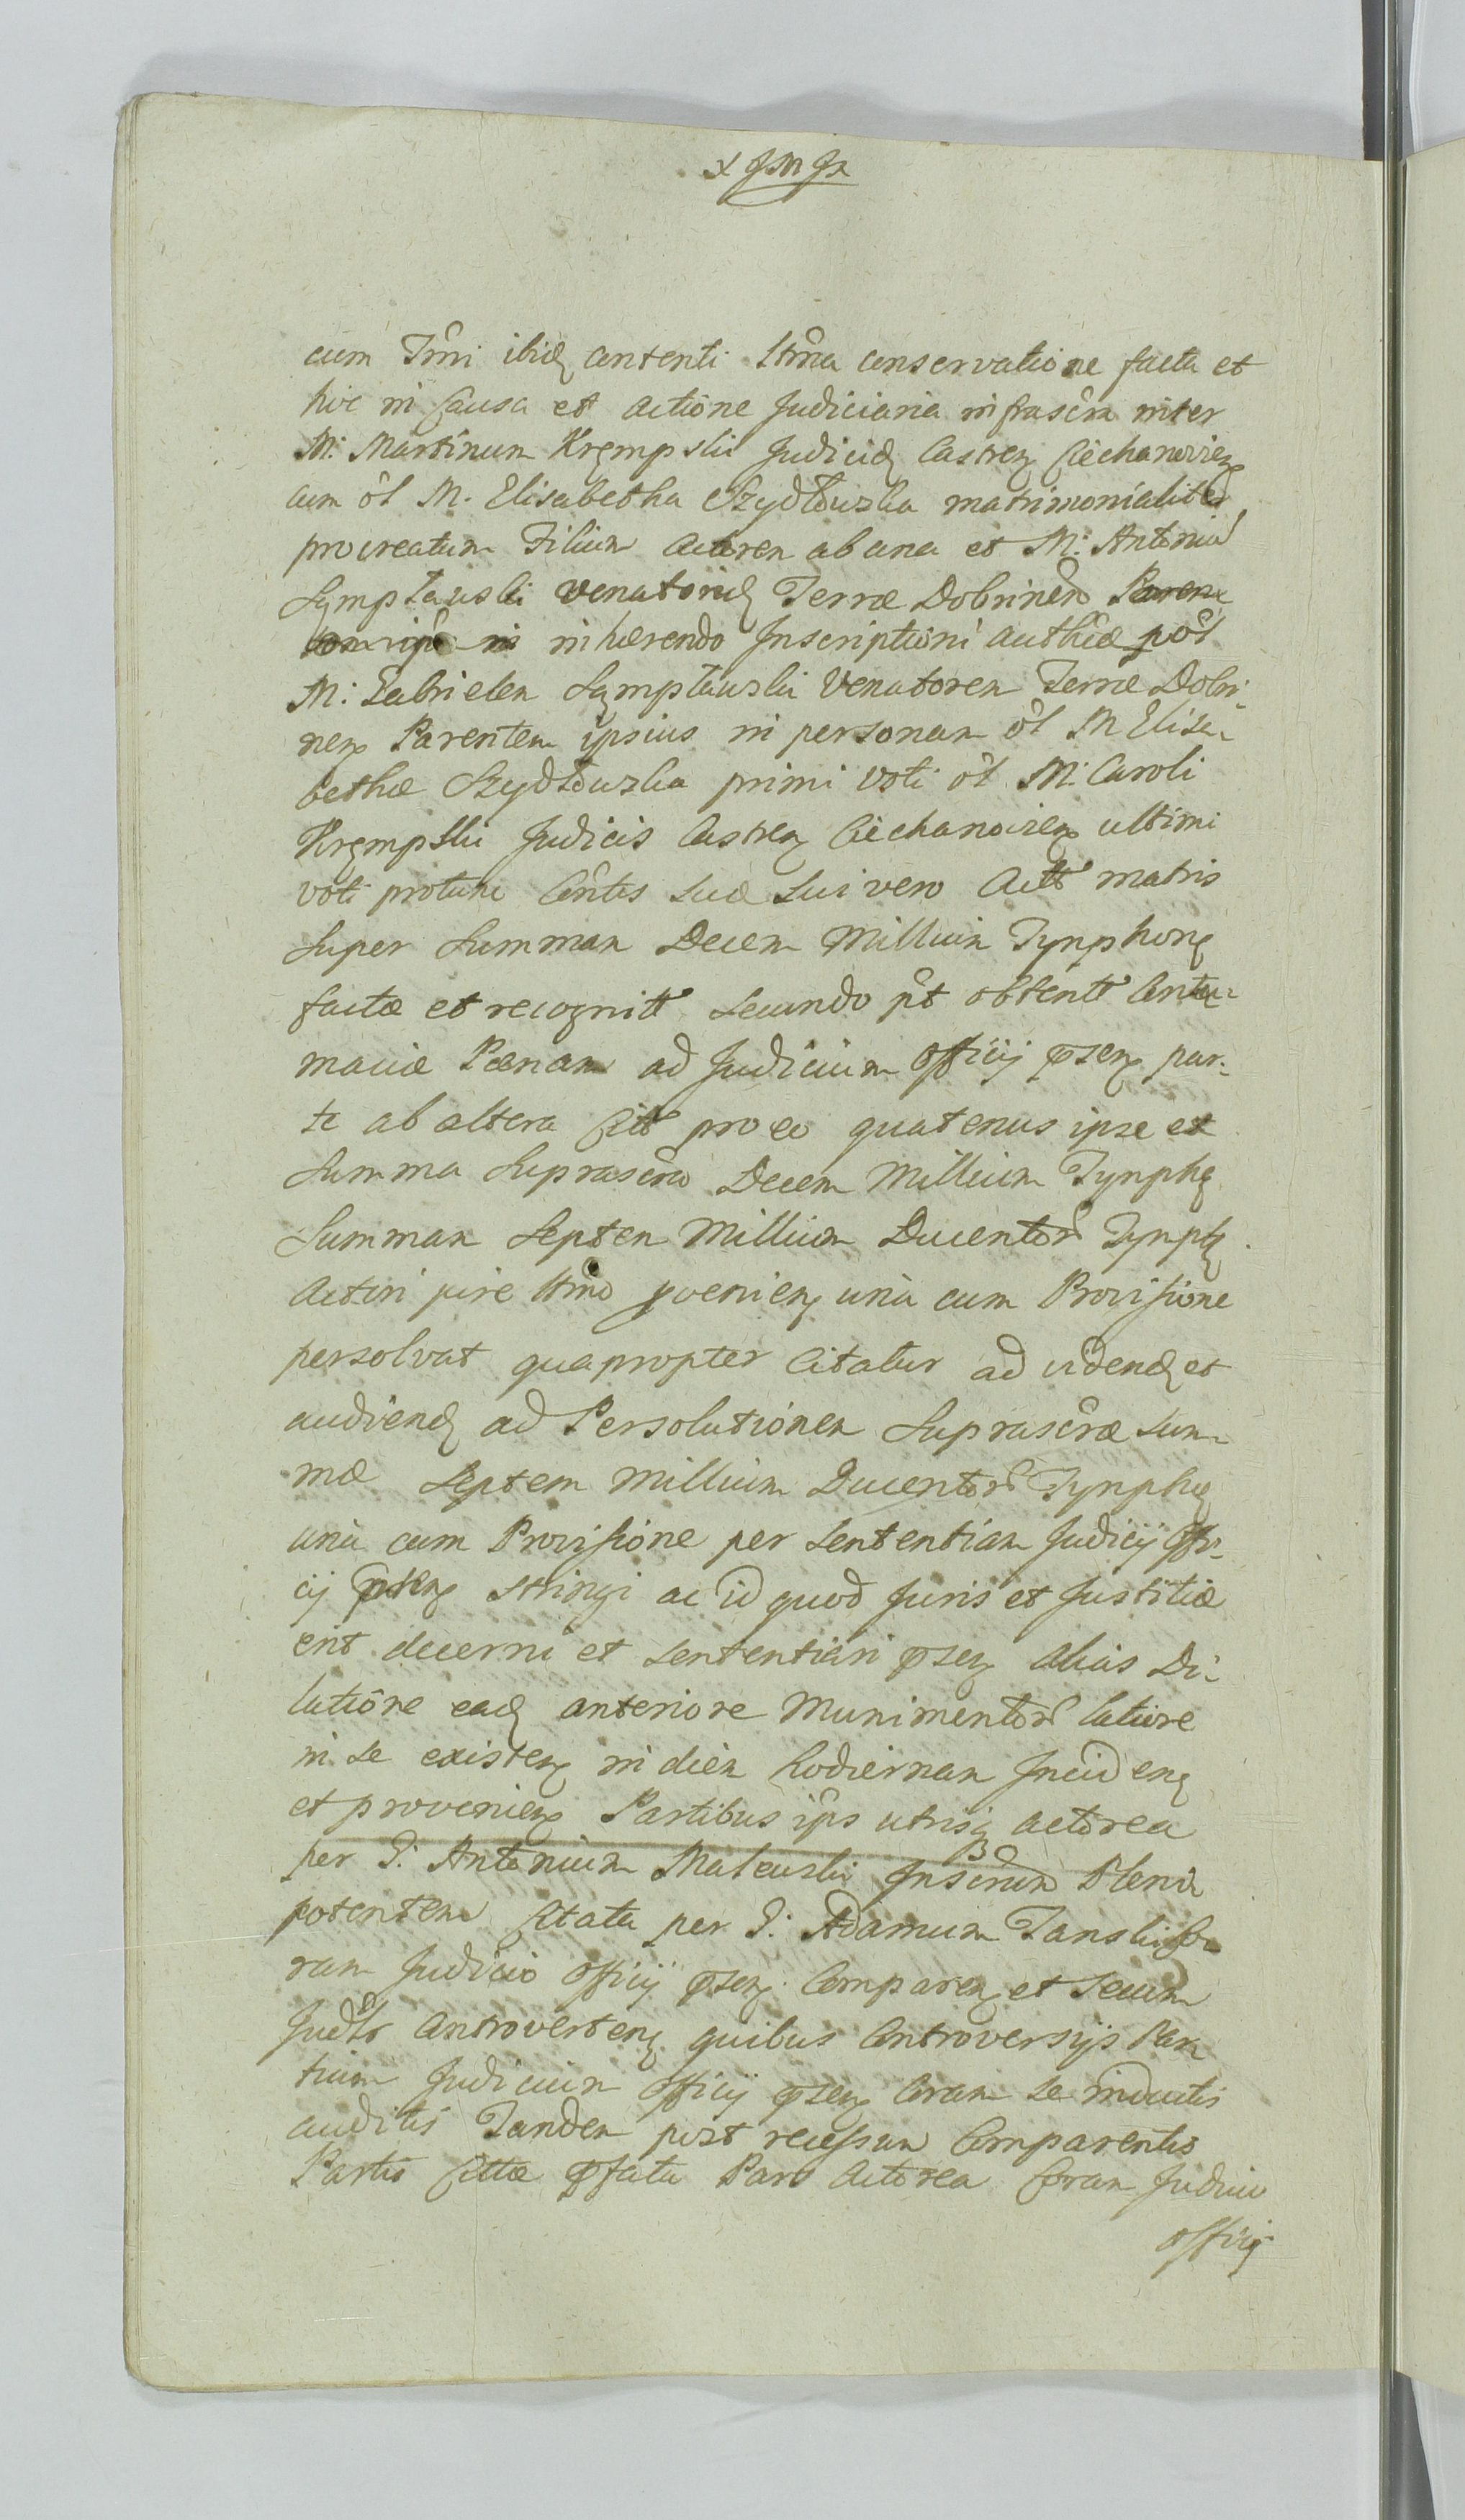 cum Trni ibid contenti ltma conservatione facta et
hic in Causa et actione Judiciaria infrascra inter
M: Martinum Krempski Judicid Castren Ciechanovien
cum ol M. Elisabetha Szydłowska matrimonialiter
procreatum Filium Actorem ab una et M: Antonium
Sumptawski Venatorid Terræ Dobrinen
inhærendo Inscriptioni authcæ
M: Gabrielem Sumptawski Venatorem Terræ Dobri-
nen Parentem ipsius in personam ol M Elisa-
bethæ Szydłowska primi voti ol M. Caroli
Krempski Judicis Castren Ciechanovien ultimi
voti protunc Contis suæ sui vero Actt matris
super Summam Decem Millium Tynphon
factæ et recognitt secundo pt obtentt Contu-
maciæ Pœnam ad Judicium Officij psen par-
te ab altera Citt pro eo quatenus ipse ex
Summa Suprascra Decem Millium Tynph
Summam Septem Millium Ducentor Tynph
Actori jure ltmo provenien una cum Provisione
persolvat quapropter Citatur ad vidend et
audiend ad Persolutionem Suprascræ Sum-
mæ Septem Millium Ducentor Tynph
una cum Provisione per Sententiam Judicij Offi-
cij psen stringi ac id quod Juris et Justitiæ
erit decerni et sententiari psen alias Di-
latione ead anteriore Munimentor latione
in se existen in diem hodiernam Inciden
et provenien Partibus ips utrisq actorea
per G: Antonium Makuski Inscrum Pleni-
potentem Citata per G: Adamum Tanski Co-
ram Judicio Officij psen Comparen et secum
Judlr Controverten quibus Controversijs Par-
tium Judicium Officij psen Coram se inductis
auditis Tandem post recessum Comparentis
Partis Cittæ pfata Pars Actorea Coram Judicio
Officij